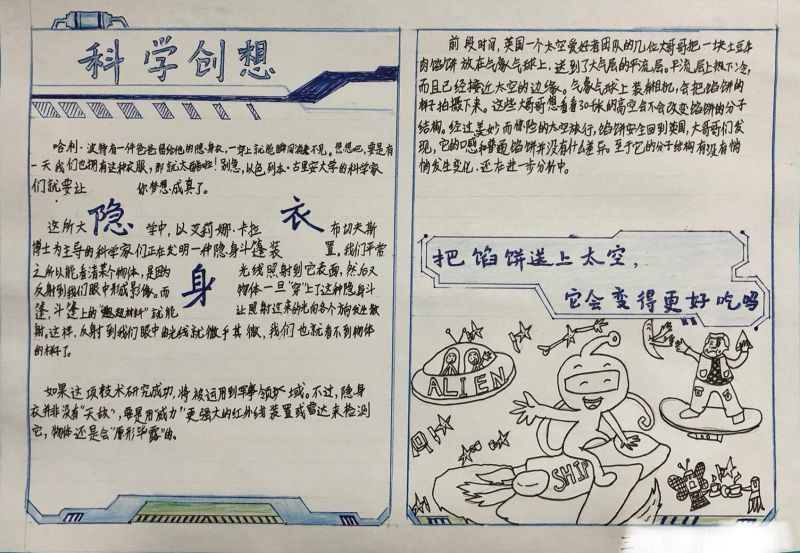 科学创想
哈利·波特有一件爸爸留给他的隐身衣，一穿上就能瞬间消失不见。想想吧，要是有
一天我们也拥有这种衣服，那就太酷啦！别急，以色列本·古里安大学的科学家
们就要让你梦想成真了。
隐身衣
这所大学中，以艾莉娜·卡拉布切夫斯
博士为主导的科学家们正在发明一种隐身斗篷装置，我们平常
之所以能看清某个物体，是因为光线照射到它表面，然后又
反射到我们眼中形成影像。而物体一旦"穿"上了这种隐身斗
篷，斗篷上的"超材料"就能让照射过来的光向各个方向发生散
射。这样，反射到我们眼中的光线就微乎其微，我们也就看不到物体
的样子了。
如果这项技术研究成功，将被运用到军事领域。不过，隐身
衣并非没有"天敌"，要是用威力更强大的红外线装置或雷达来检测
它，物体还是会"原形毕露"的。
前段时间，英国一个太空爱好者团队的几位大哥哥把一块土豆牛
肉馅饼放在气象气球上，送到了大气层的平流层。平流层上热下冷，
而且已经接近太空的边缘。气象气球上装有相机，会把馅饼的
样子拍摄下来。这些大哥哥想看看30千米的高空会不会改变馅饼的分子
结构。经过美妙而惊险的太空旅行，馅饼安全回到英国，大哥哥们发
现，它的口感和普通馅饼并没有什么差异。至于它的分子结构有没有悄
悄发生变化，还在进一步分析中。
把馅饼送上太空，
它会变得更好吃吗
ALIEN
SHIP